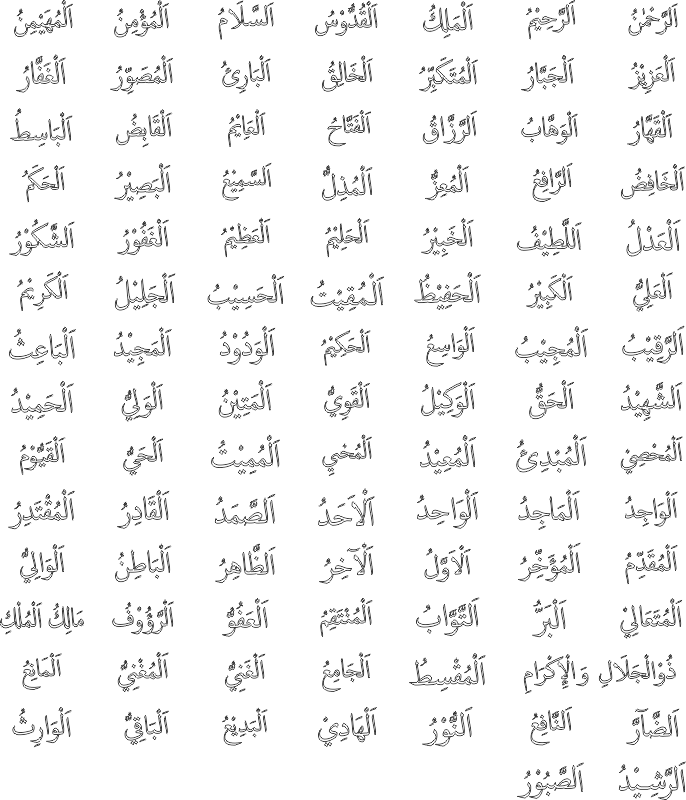 اَلرَّحْمٰنُ اَلرَّحِيْمُ اَلْمَلِكُ اَلْقُدُّوْسُ اَلسَّلَامُ اَلْمُؤْمِنُ اَلْمُهَيْمِنُ
اَلْعَزِيْزُ اَلْجَبَّارُ اَلْمُتَكَبِّرُ اَلْخَالِقُ اَلْبَارِئُ اَلْمُصَوِّرُ اَلْغَفَّارُ
اَلْقَهَّارُ اَلْوَهَّابُ اَلرَّزَّاقُ اَلْفَتَّاحُ اَلْعَلِيْمُ اَلْقَابِضُ اَلْبَاسِطُ
اَلْخَافِضُ اَلرَّافِعُ اَلْمُعِزُّ اَلْمُذِلُّ اَلسَّمِيْعُ اَلْبَصِيْرُ اَلْحَكَمُ
اَلْعَدْلُ اَللَّطِيْفُ اَلْخَبِيْرُ اَلْحَلِيْمُ اَلْعَظِيْمُ اَلْغَفُوْرُ اَلشَّكُوْرُ
اَلْعَلِيُّ اَلْكَبِيْرُ اَلْحَفِيْظُ اَلْمُقِيْتُ اَلْحَسِيْبُ اَلْجَلِيْلُ اَلْكَرِيْمُ
اَلرَّقِيْبُ اَلْمُجِيْبُ اَلْوَاسِعُ اَلْحَكِيْمُ اَلْوَدُوْدُ اَلْمَجِيْدُ اَلْبَاعِثُ
اَلشَّهِيْدُ اَلْحَقُّ اَلْوَكِيْلُ اَلْقَوِيُّ اَلْمَتِيْنُ اَلْوَلِيُّ اَلْحَمِيْدُ
اَلْمُحْصِيْ اَلْمُبْدِئُ اَلْمُعِيْدُ اَلْمُحْيِي اَلْمُمِيْتُ اَلْحَيُّ اَلْقَيُّوْمُ
اَلْوَاجِدُ اَلْمَاجِدُ اَلْوَاحِدُ اَلْاَحَدُ اَلصَّمَدُ اَلْقَادِرُ اَلْمُقْتَدِرُ
اَلْمُقَدِّمُ اَلْمُؤَخِّرُ اَلْاَوَّلُ اَلْآخِرُ اَلظَّاهِرُ اَلْبَاطِنُ اَلْوَالِيُّ
اَلْمُتَعَالِيْ اَلْبَرُّ اَلتَّوَّابُ اَلْمُنْتَقِمُ اَلْعَفُوُّ اَلرَّؤُوْفُ مَالِكُ الْمُلْكِ
ذُوْالْجَلَالِ وَالْإِكْرَامِ اَلْمُقْسِطُ اَلْجَامِعُ اَلْغَنِيُّ اَلْمُغْنِيُّ اَلْمَانِعُ
اَلضَّآرَّ اَلنَّافِعُ اَلنُّوْرُ اَلْهَادِيْ اَلْبَدِيْعُ اَلْبَاقِيُّ اَلْوَارِثُ
اَلرَّشِيْدُ اَلصَّبُوْرُ